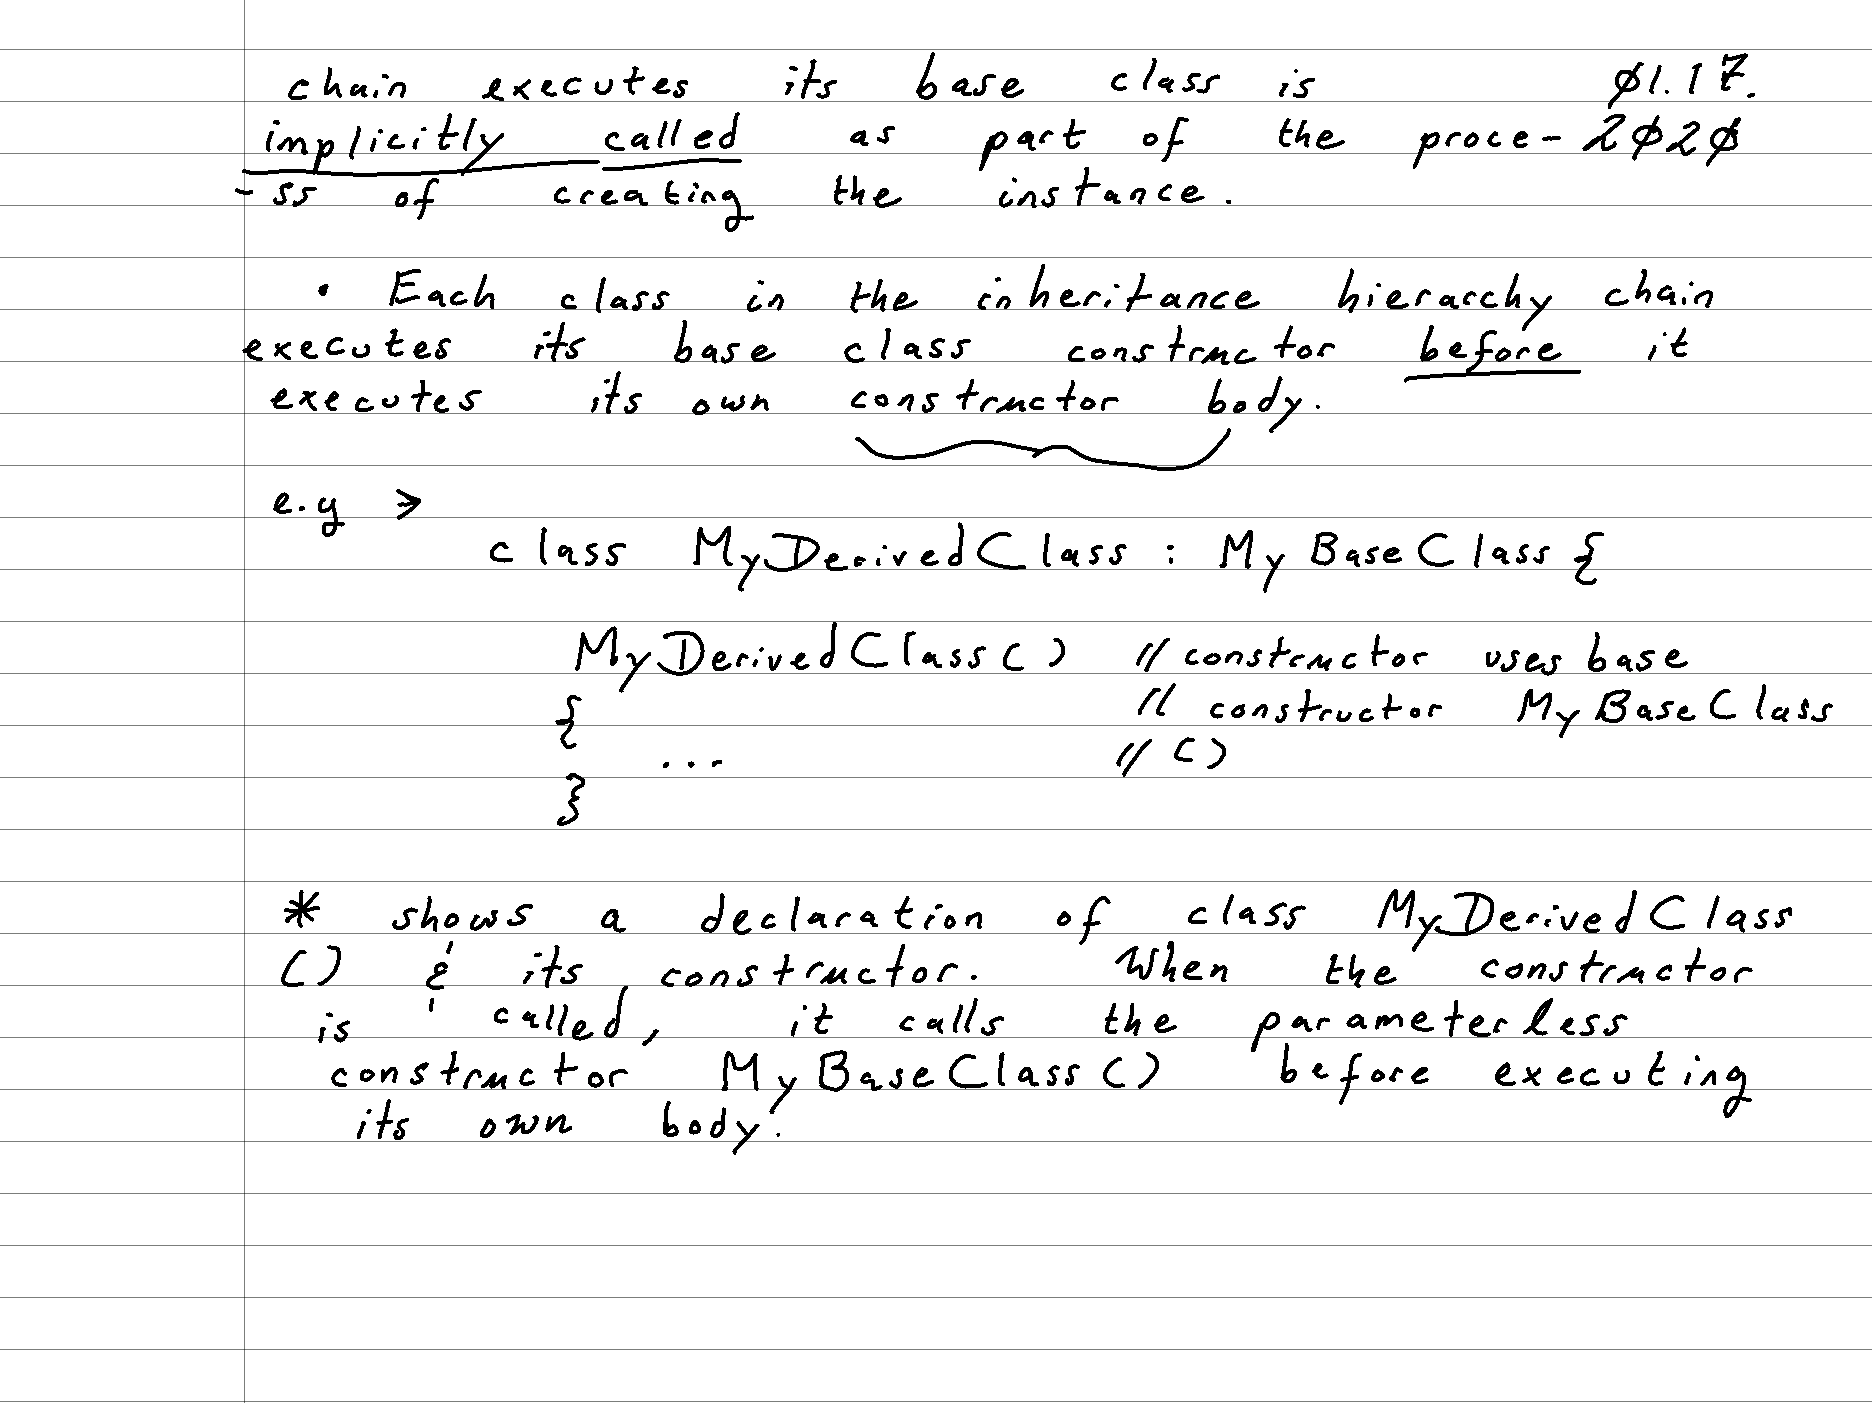 chain executes its base class is Ø1.17.
implicitly called as part of the proce- 2Ø2Ø
-ss of creating the instance.
• Each class in the inheritance hierarchy chain
executes its base class constructor before it
executes its own constructor body.
e.g ⇒
class MyDerivedClass : MyBaseClass {
MyDerivedClass() // constructor uses base
{ // constructor MyBaseClass
... // ()
}
* shows a declaration of class MyDerivedClass
() & its constructor. When the constructor
is called, it calls the parameterless
constructor MyBaseClass() before executing
its own body.